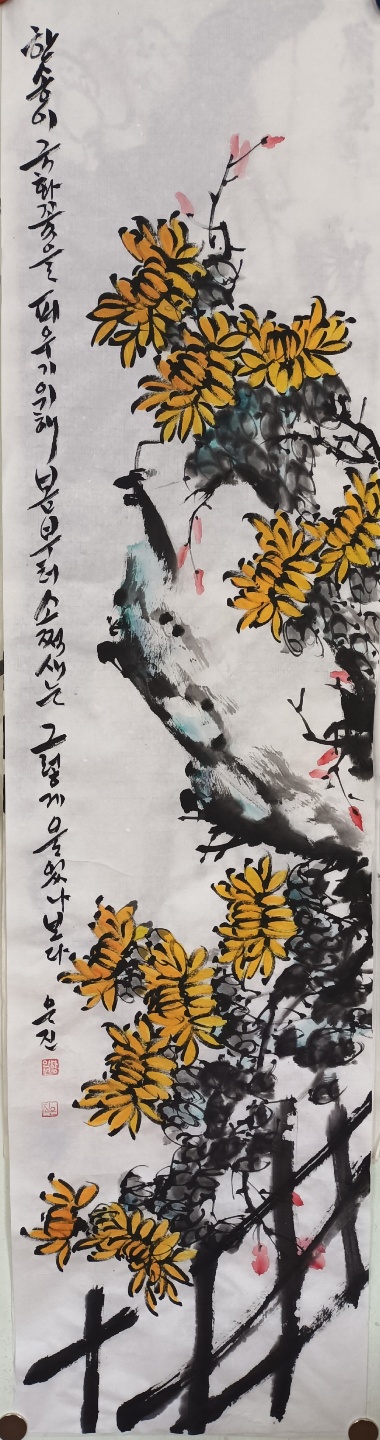 한송이 국화꽃을 피우기위해 봄부터 소쩍새는 그렇게 울었나보다
은진